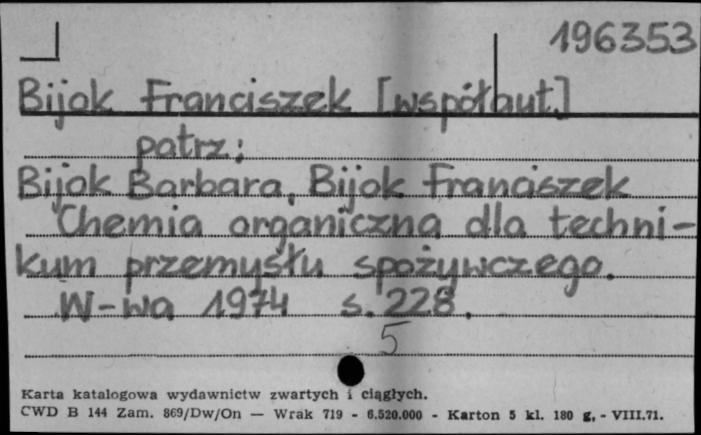 196353
Bijok Franciszek [współaut.]
patrz:
Bijok Barbara, Bijok Franciszek
Chemia organiczna dla techni-
kum przemysłu spożywczego.
W-wa 1974 s. 228.
5
Karta katalogowa wydawnictw zwartych i ciągłych.
CWD B 144 Zam. 869/Dw/On — Wrak 719 - 6.520.000 - Karton 5 kl. 180 g. - VIII.71.